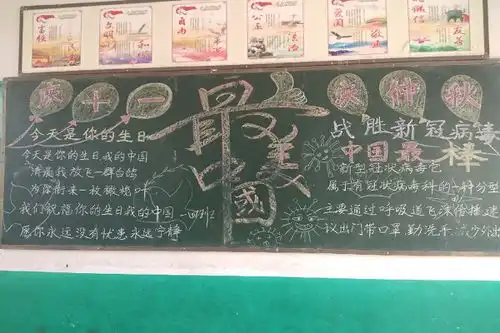 富强
文明
和
自由
公正
法治
爱国
敬业
诚信
友善
庆十一
今天是你的生日
今天是你的生日我的中国
清晨我放飞一群白鸽
为你衔来一枚橄榄叶
我们祝福你的生日我的中国
愿你永远没有忧患永远宁静
四班
最美中國
迎中秋
战胜新冠病毒
中国最棒
新型冠状病毒它
属于有冠状病毒科的一种分型
主要通过呼吸道飞沫传播建
议出门带口罩,勤洗手,减少外出